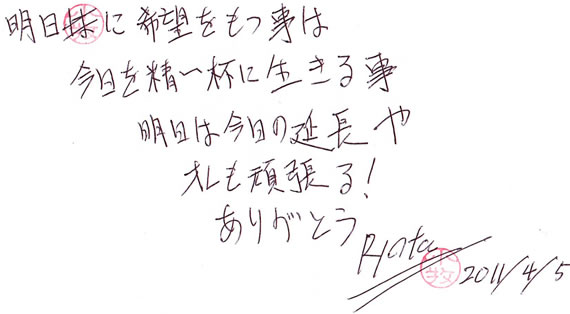 明日に希望をもつ事は
今日を精一杯に生きる事
明日は今日の延長や
オレも頑張る!
ありがとう
2011/4/5